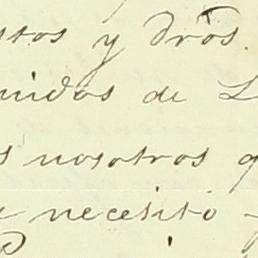 stos y dros.
unidos de L
s nosotros q
necesito